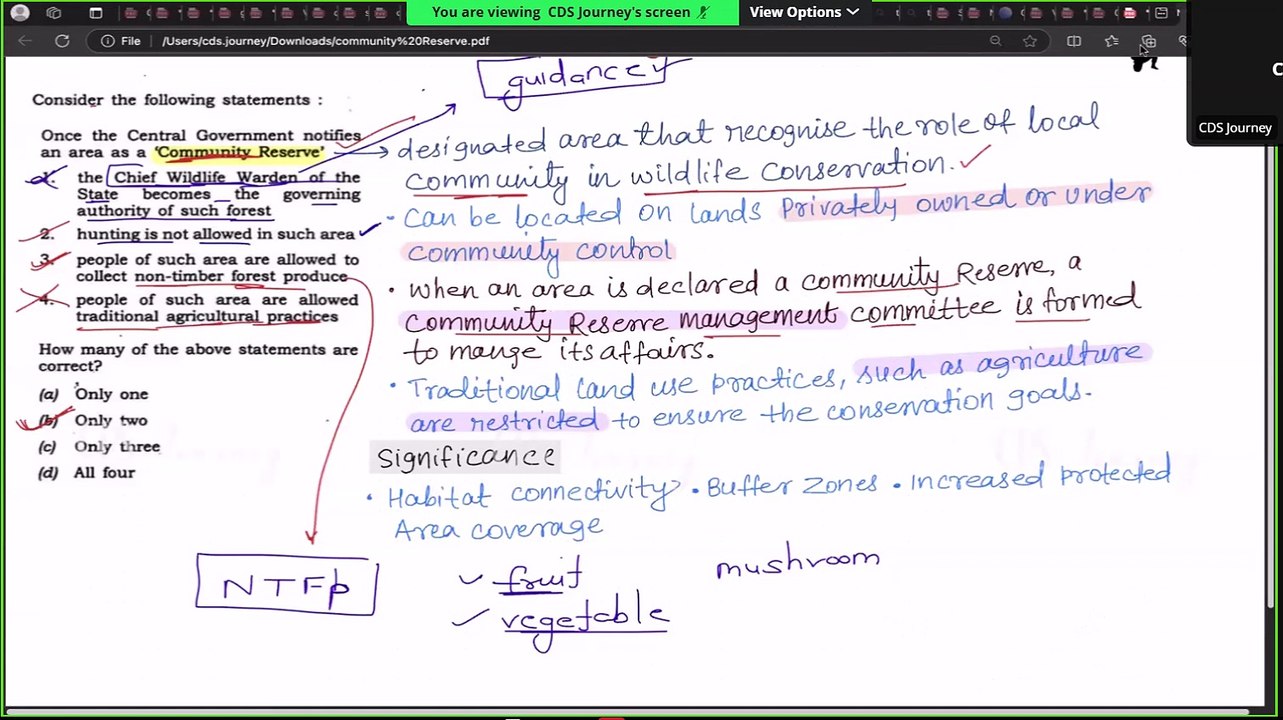 You are viewing CDS Journey's screen
View Options
File
/Users/cds.journey/Downloads/community%20Reserve.pdf
CDS Journey
guidance
Consider the following statements :
Once the Central Government notifies
an area as a 'Community Reserve'
1. the Chief Wildlife Warden of the
State becomes the governing
authority of such forest
2. hunting is not allowed in such area
3. people of such area are allowed to
collect non-timber forest produce
4. people of such area are allowed
traditional agricultural practices
How many of the above statements are
correct?
(a) Only one
(b) Only two
(c) Only three
(d) All four
designated area that recognise the role of local
community in wildlife conservation.
• Can be located on lands Privately owned or under
community control
• when an area is declared a community Reserve, a
Community Reserve management committee is formed
to mange its affairs.
• Traditional land use practices, such as agriculture
are restricted to ensure the conservation goals.
Significance
• Habitat connectivity • Buffer Zones • Increased protected
Area coverage
NTFp
fruit
mushroom
vegetable